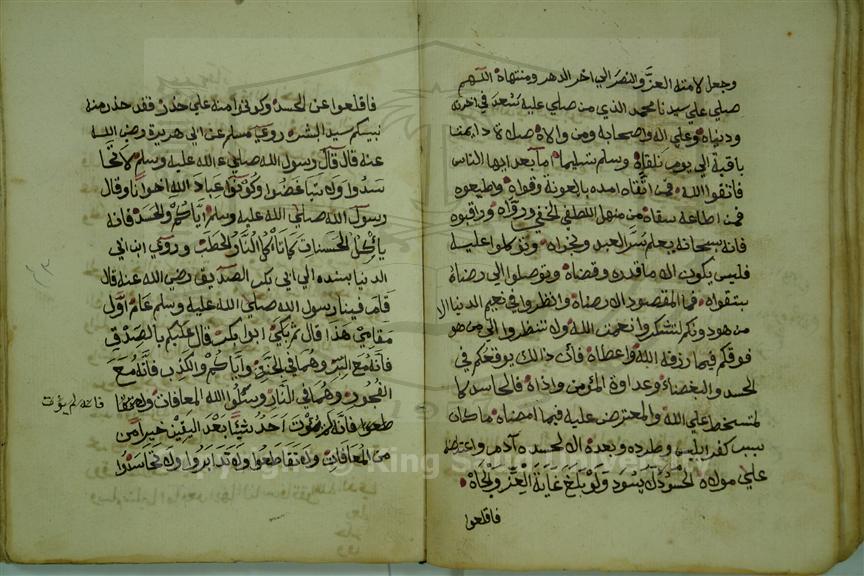 وجعل لامته العز والنصر الي اخر الدهر ومنتهاه اللهم
صلي علي سيدنا محمد الذي من صلي عليه يسعد في اخرته
ودنياه وعلي اله واصحابه ومن والاه صلاة دايمة
باقية الي يوم نلقاه وسلم تسليما اما بعد ايها الناس
فاتقوا الله فمن اتقاه امده بالعونة وقواه واطيعوه
فمن اطاعه سقاه من منهل اللطف الخفي ورقاه وراقبوه
فانه سبحانه يعلم سر العبد ونجواه وتوكلوا عليه
فليس يكون الا ما قدره وقضاه وتوصلوا الي رضاه
بتقواه فما المقصود الا رضاه وانظروا في نعيم الدنيا الا
من هو دونكم لتشكروا نعمت الله ولا تنظروا الي من هو
فوقكم فيما رزقه الله واعطاه فان ذالك يوقعكم في
الحسد والبغضاء وعداوة المؤمن واذاه فالحاسد كا
لمتسخط علي الله والمعترض عليه فيما امضاه ما كان
سبب كفر ابليس وطرده وبعده الا لحسده آدم واعتراضه
علي مولاه الحسود لا يسود ولو بلغ غاية العز والجاه
فاقلعوا
فاقلعوا عن الحسد وكونوا منه علي حذر فقد حذر منه
نبيكم سيد البشر روي مسلم عن ابي هريرة رضي الله
عنه قال قال رسول الله صلي الله عليه وسلم لا تحا
سدوا ولا تباغضوا وكونوا عباد الله اخوانا وقال
رسول الله صلي الله عليه وسلم اياكم والحسد فانه
ياكل الحسنات كما تاكل النار الحطب وروي ابن ابي
الدنيا بسنده الي ابي بكر الصديق رضي الله عنه قال
قام فينا رسول الله صلي الله عليه وسلم عام اول
مقامي هذا قال ثم بكي ابو بكر قال عليكم بالصدق
فانه مع البر وهما في الجنة واياكم والكذب فانه مع
الفجور وهما في النار وسئلوا الله المعافات ولا تقا
فانه لم يؤت
طعوا فانه لم يؤت احد شيئا بعد اليقين خيرا من
من المعافات ولا تقاطعوا ولا تدابروا ولا تحاسدوا
Copyright © King Saud University